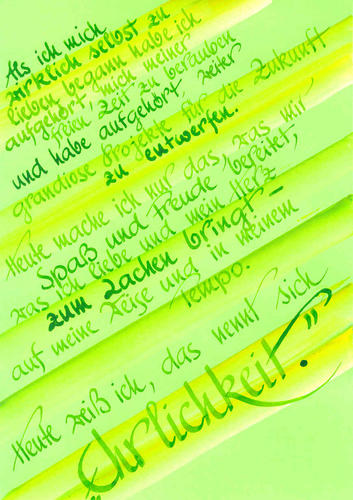 Als ich mich
wirklich selbst zu
lieben begann habe ich
aufgehört, mich meiner
freien Zeit zu berauben
und habe aufgehört, weiter
grandiose Projekte für die Zukunft
zu entwerfen.
Heute mache ich nur das, was mir
Spaß und Freude bereitet,
was ich liebe und mein Herz
zum Lachen bringt –
auf meine Weise und in meinem
Tempo.
Heute weiß ich, das nennt sich
„Ehrlichkeit.”